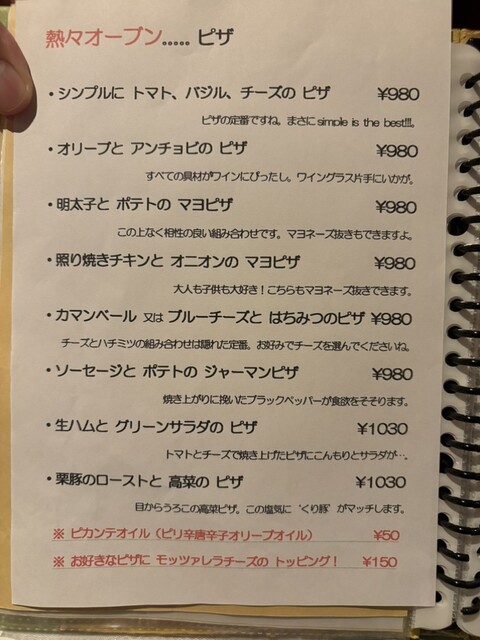 熱々オーブン..... ピザ
・シンプルに トマト、バジル、チーズの ピザ ¥980
ピザの定番ですね。まさにsimple is the best!!!。
・オリーブと アンチョビの ピザ ¥980
すべての具材がワインにぴったし。ワイングラス片手にいかが。
・明太子と ポテトの マヨピザ ¥980
この上なく相性の良い組み合わせです。マヨネーズ抜きもできますよ。
・照り焼きチキンと オニオンの マヨピザ ¥980
大人も子供も大好き！こちらもマヨネーズ抜きできます。
・カマンベール 又は ブルーチーズと はちみつのピザ ¥980
チーズとハチミツの組み合わせは隠れた定番。お好みでチーズを選んでくださいね。
・ソーセージと ポテトの ジャーマンピザ ¥980
焼き上がりに挽いたブラックペッパーが食欲をそそります。
・生ハムと グリーンサラダの ピザ ¥1030
トマトとチーズで焼き上げたピザにこんもりとサラダが…。
・栗豚のローストと 高菜の ピザ ¥1030
目からうろこの高菜ピザ。この塩気に〝くり豚〟がマッチします。
※ ピカンテオイル（ピリ辛唐辛子オリーブオイル） ¥50
※ お好きなピザに モッツァレラチーズの トッピング！ ¥150